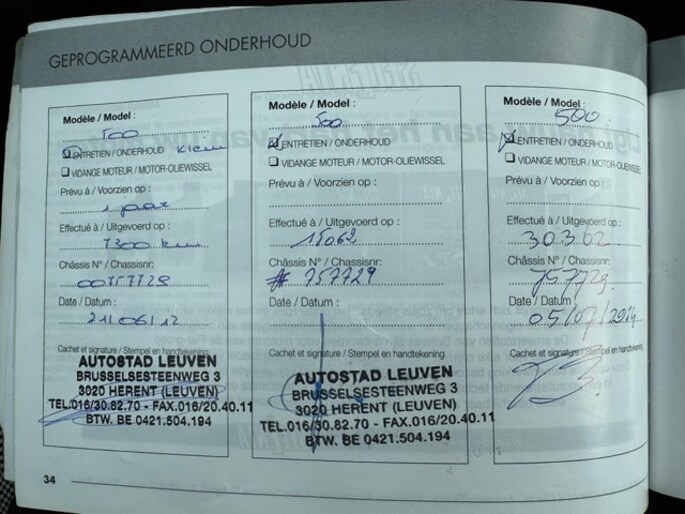 GEPROGRAMMEERD ONDERHOUD
Modèle / Model :
500
ENTRETIEN / ONDERHOUD klein
VIDANGE MOTEUR / MOTOR-OLIEWISSEL
Prévu à / Voorzien op :
1 jaar
Effectué à / Uitgevoerd op :
7300 km
Châssis N° / Chassisnr:
00757729
Date / Datum :
21/06/12
Cachet et signature / Stempel en handtekening
AUTOSTAD LEUVEN
BRUSSELSESTEENWEG 3
3020 HERENT (LEUVEN)
TEL.016/30.82.70 - FAX.016/20.40.11
BTW. BE 0421.504.194
Modèle / Model :
500
ENTRETIEN / ONDERHOUD
VIDANGE MOTEUR / MOTOR-OLIEWISSEL
Prévu à / Voorzien op :
Effectué à / Uitgevoerd op :
15062
Châssis N° / Chassisnr:
# 757729
Date / Datum :
Cachet et signature / Stempel en handtekening
AUTOSTAD LEUVEN
BRUSSELSESTEENWEG 3
3020 HERENT (LEUVEN)
TEL.016/30.82.70 - FAX.016/20.40.11
BTW. BE 0421.504.194
Modèle / Model :
500
ENTRETIEN / ONDERHOUD
VIDANGE MOTEUR / MOTOR-OLIEWISSEL
Prévu à / Voorzien op :
Effectué à / Uitgevoerd op :
30362
Châssis N° / Chassisnr:
757729
Date / Datum :
05/07/2014
Cachet et signature / Stempel en handtekening
34